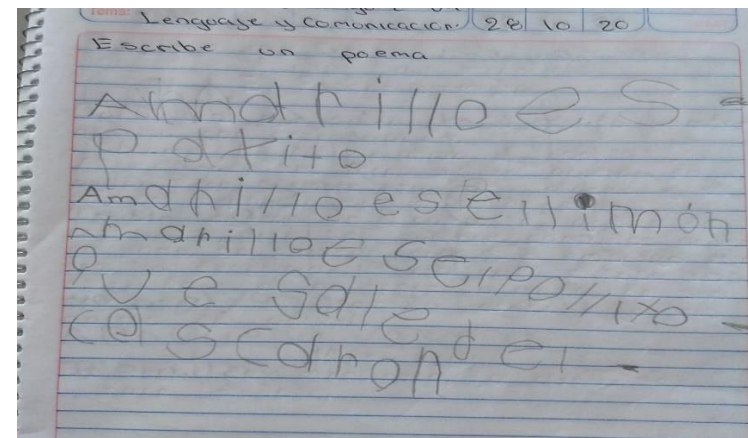 Lenguaje y comunicación. 28 10 20
Escribe un poema
Amarillo es
patito
Amarillo es el limón
amarillo es el pollito
que sale del
cascaron